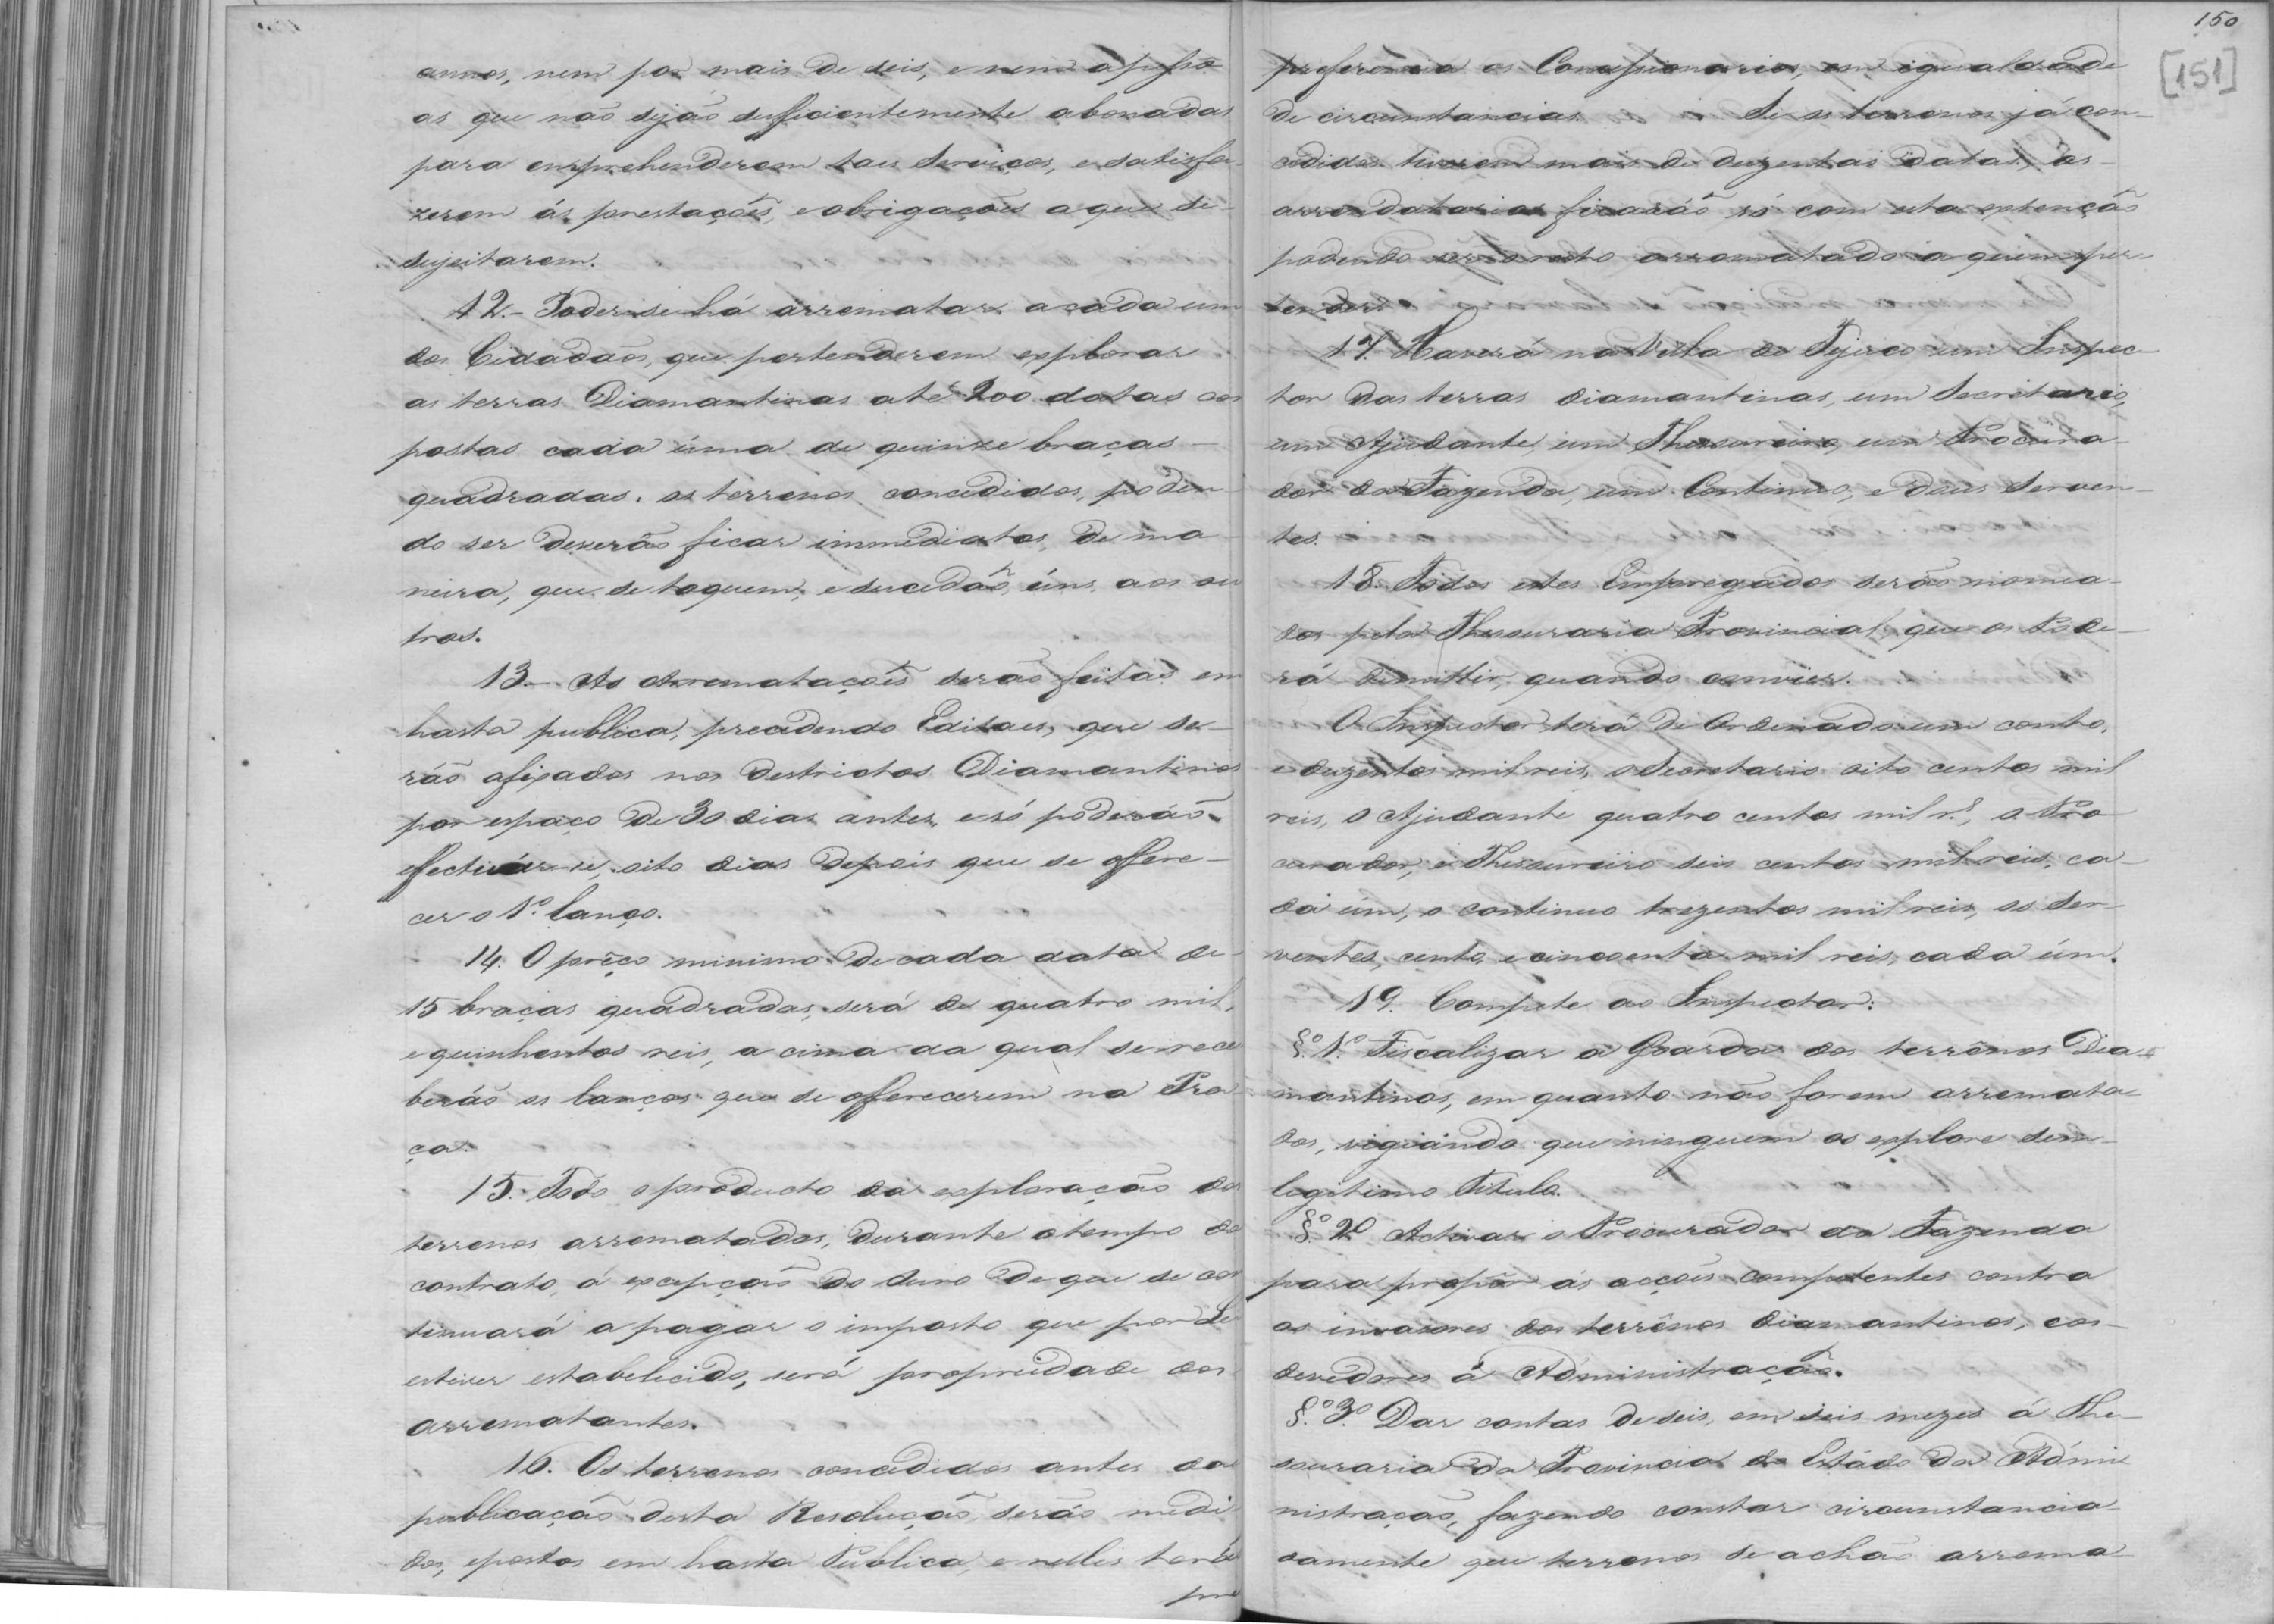 annos, nem por mais de seis, e nem a pesso
as que não sejão sufficientemente abonadas
para emprehenderem taes Serviços, e satisfa-
zerem ás prestações, e obrigações a que se
sujeitarem.
12.- Poder-se-há arrematar a cada um
dos Cidadãos, que pertenderem explorar
as terras Diamantinas até 200 datas com
postas cada úma de quinze braças
quadradas. os terrenos concedidos, poden
do ser deverão ficar immediatos, de ma
neira, que se toquem, e sucedão, úns aos ou
tros.
13.- As Arrematações serão feitas em
hasta publica, precedendo Editaes, que se-
rão afixados nos destrictos Diamantinos
por espaço de 30 dias antes, e só poderáõ
effectivár-se, oito dias depois que se offere-
cer o 1º lanço.
14. O prêço minimo de cada data de
15 braças quadradas, será de quatro mil,
e quinhentos reis, a cima da qual se rece
beráõ os lanços que se offerecerem na Pra
ça.
15. Todo o producto da exploração dos
terrenos arrematados, durante o tempo do
contrato, á excepção do ouro de que se con
tinuará a pagar o imposto que por Lei
estiver estabelecido, será propriedade dos
arrematantes.
16. Os terrenos concedidos antes da
publicação desta Resolução serão medi
dos, e postos em hasta Publica, e nelles terão
pre
150
[151]
preferencia os Concessionarios, em igualdade
de circunstancias. Se os terrenos já con-
cedidos tiverem mais de duzentas datas, os
arrendatarios ficaráõ só com esta extenção
podendo ser o resto arrematado a quem per-
tender.
17. Haverá na Villa do Tejuco um Inspec-
tor das terras diamantinas, um Secretario,
um Ajudante, um Thesoureiro, um Procura-
dor da Fazenda, um Continuo, e dous Serven-
tes.
18. Todos estes Empregados serão nomea-
dos pela Thesouraria Provincial, que os Pode-
rá demittir, quando convier.
O Inspector terá de Ordenado um conto,
e duzentos mil reis, o Secretario oito centos mil
reis, o Ajudante quatro centos mil rs, o Pro
curador, e Thesoureiro seis centos mil reis, ca-
da úm, o continuo trezentos mil reis, os Ser-
ventes, cento, e cincoenta mil reis, cada úm.
19. Compete ao Inspector:
§º 1º Fiscalizar a Guarda dos terrênos Dia
mantinos, em quanto não forem arremata
dos, vigiando que ninguem os explore sem
legitimo Titulo.
§º 2º Activar o Procurador da Fazenda
para propôr ás acções competentes contra
os invasores dos terrênos diamantinos, e os
devedores á Administração.
§º 3º Dar contas de seis, em seis mezes á The-
souraria da Provincia do Estádo da Admi
nistração, fazendo constar circunstancia
damente que terrenos se achão arrema